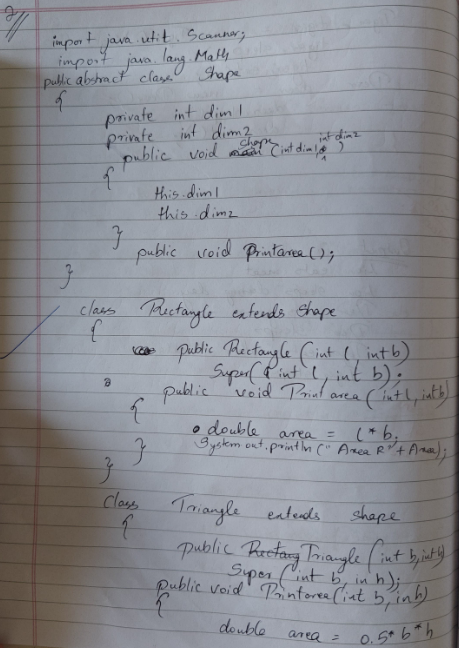 2
import java.util.Scanner;
import java.lang.Math
public abstract class Shape
{
private int dim1
private int dim2
public void shape (int dim1, int dim2)
{
this.dim1
this.dim2
}
public void Printarea();
}
class Rectangle extends shape
{
public Rectangle (int l, int b)
Super(int l, int b);
public void Print area (int l, int b)
{
double area = l*b;
System.out.println(" Area R"+Area);
}
}
class Triangle extends shape
{
public Triangle (int b, int h)
Super (int b, in h);
public void Printarea(int b, in h)
{
double area = 0.5*b*h